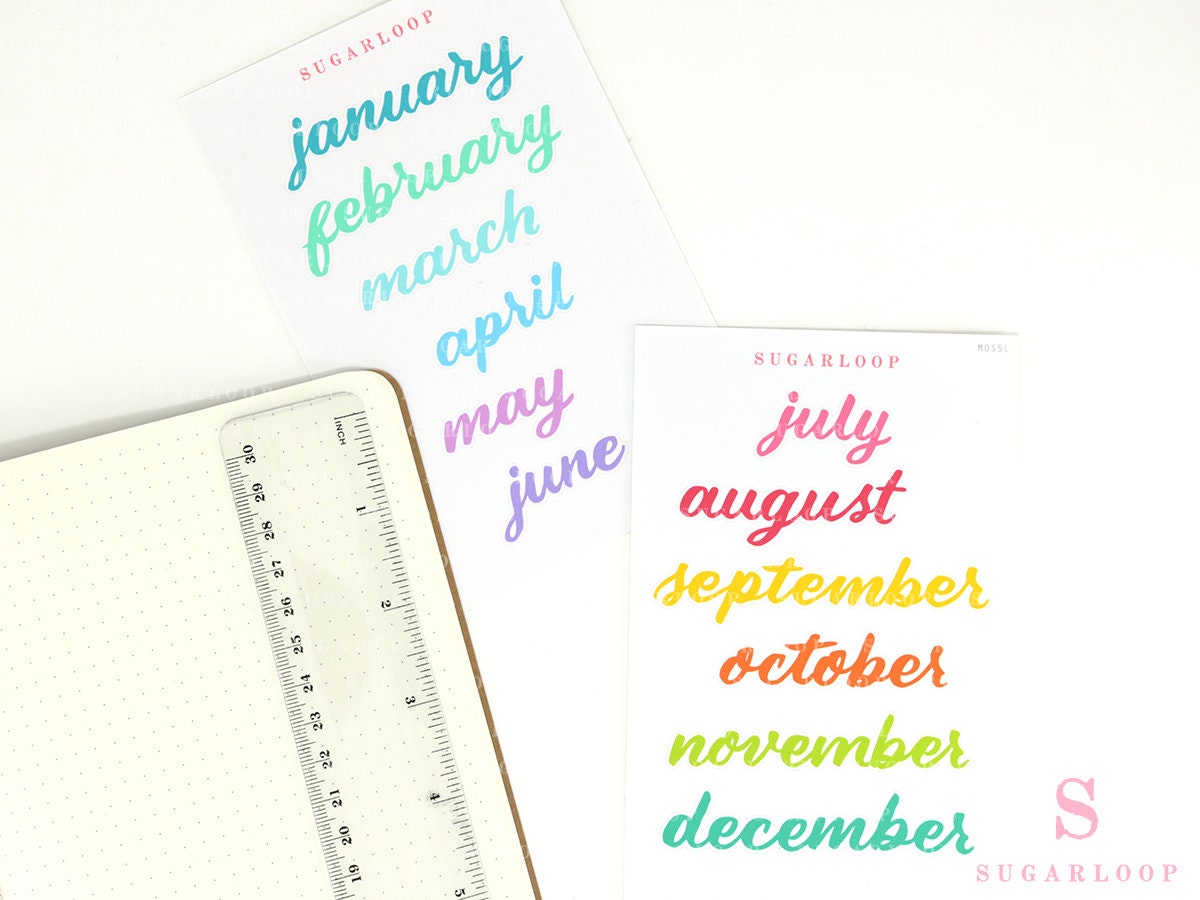 SUGARLOOP
january
february
march
april
may
june
SUGARLOOP
MOSSL
july
august
september
october
november
december
INCH
1
2
3
4
5
30
29
28
27
26
25
24
23
22
21
20
19
S
SUGARLOOP